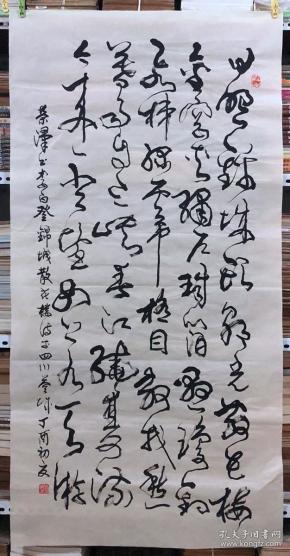 日照錦城頭朝光散花樓
金窗夾繡户珠箔懸瓊鈎
飛梯綠雲中極目散我愁
暮雨向三峽春江繞雙流
今來一登望如上九天游
榮澤书李白登錦城散花樓诗于四川蓉城丁酉初夏
孔夫子旧书网